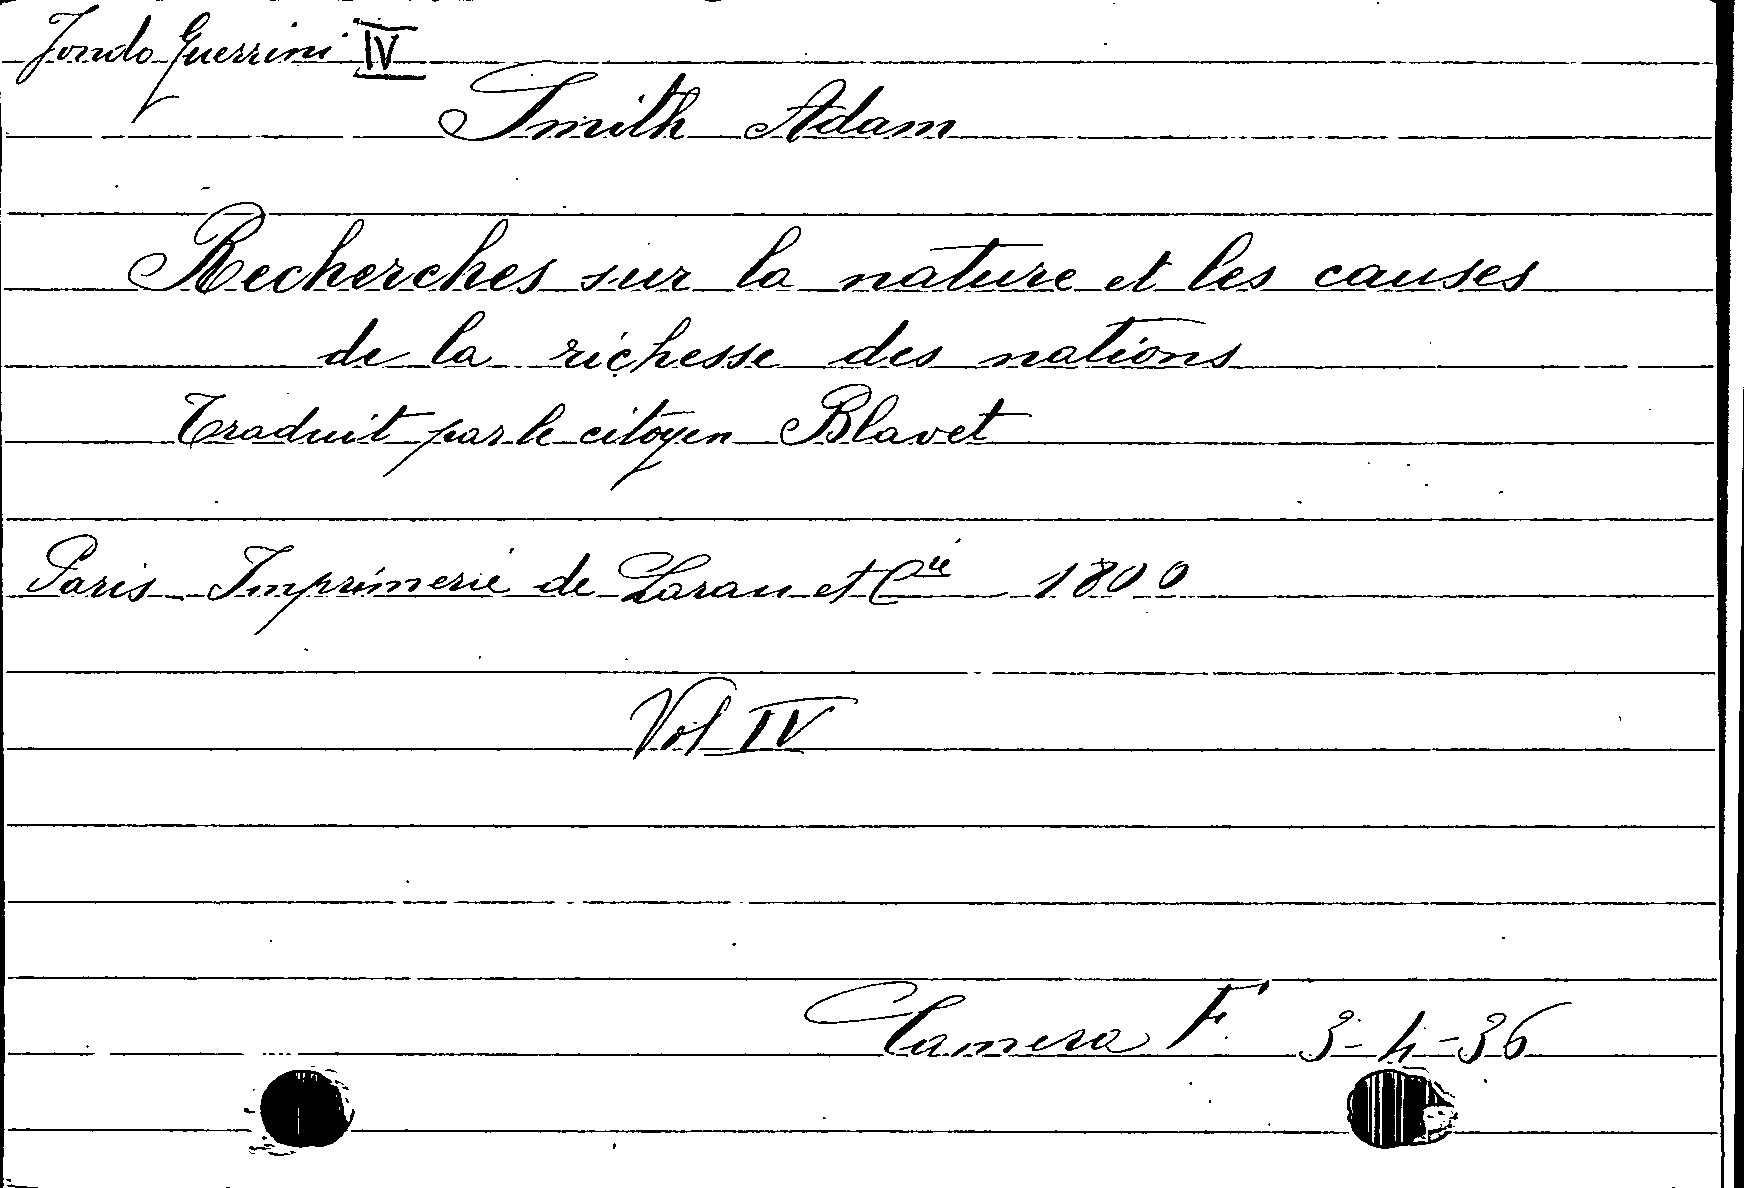 Fondo Guerrini IV
Smith Adam
Recherches sur la nature et les causes
de la richesse des nations
Traduit par le citoyen Blavet
Paris Imprimerie de Laran et Cie 1800
Vol IV
Camera F. 3-4-36